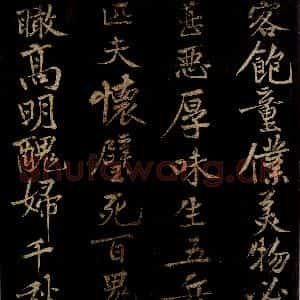 客飽童僕美物必
甚惡厚味生五兵
匹夫懷璧死百鬼
瞰高明醜婦千秋
shufawang.cn